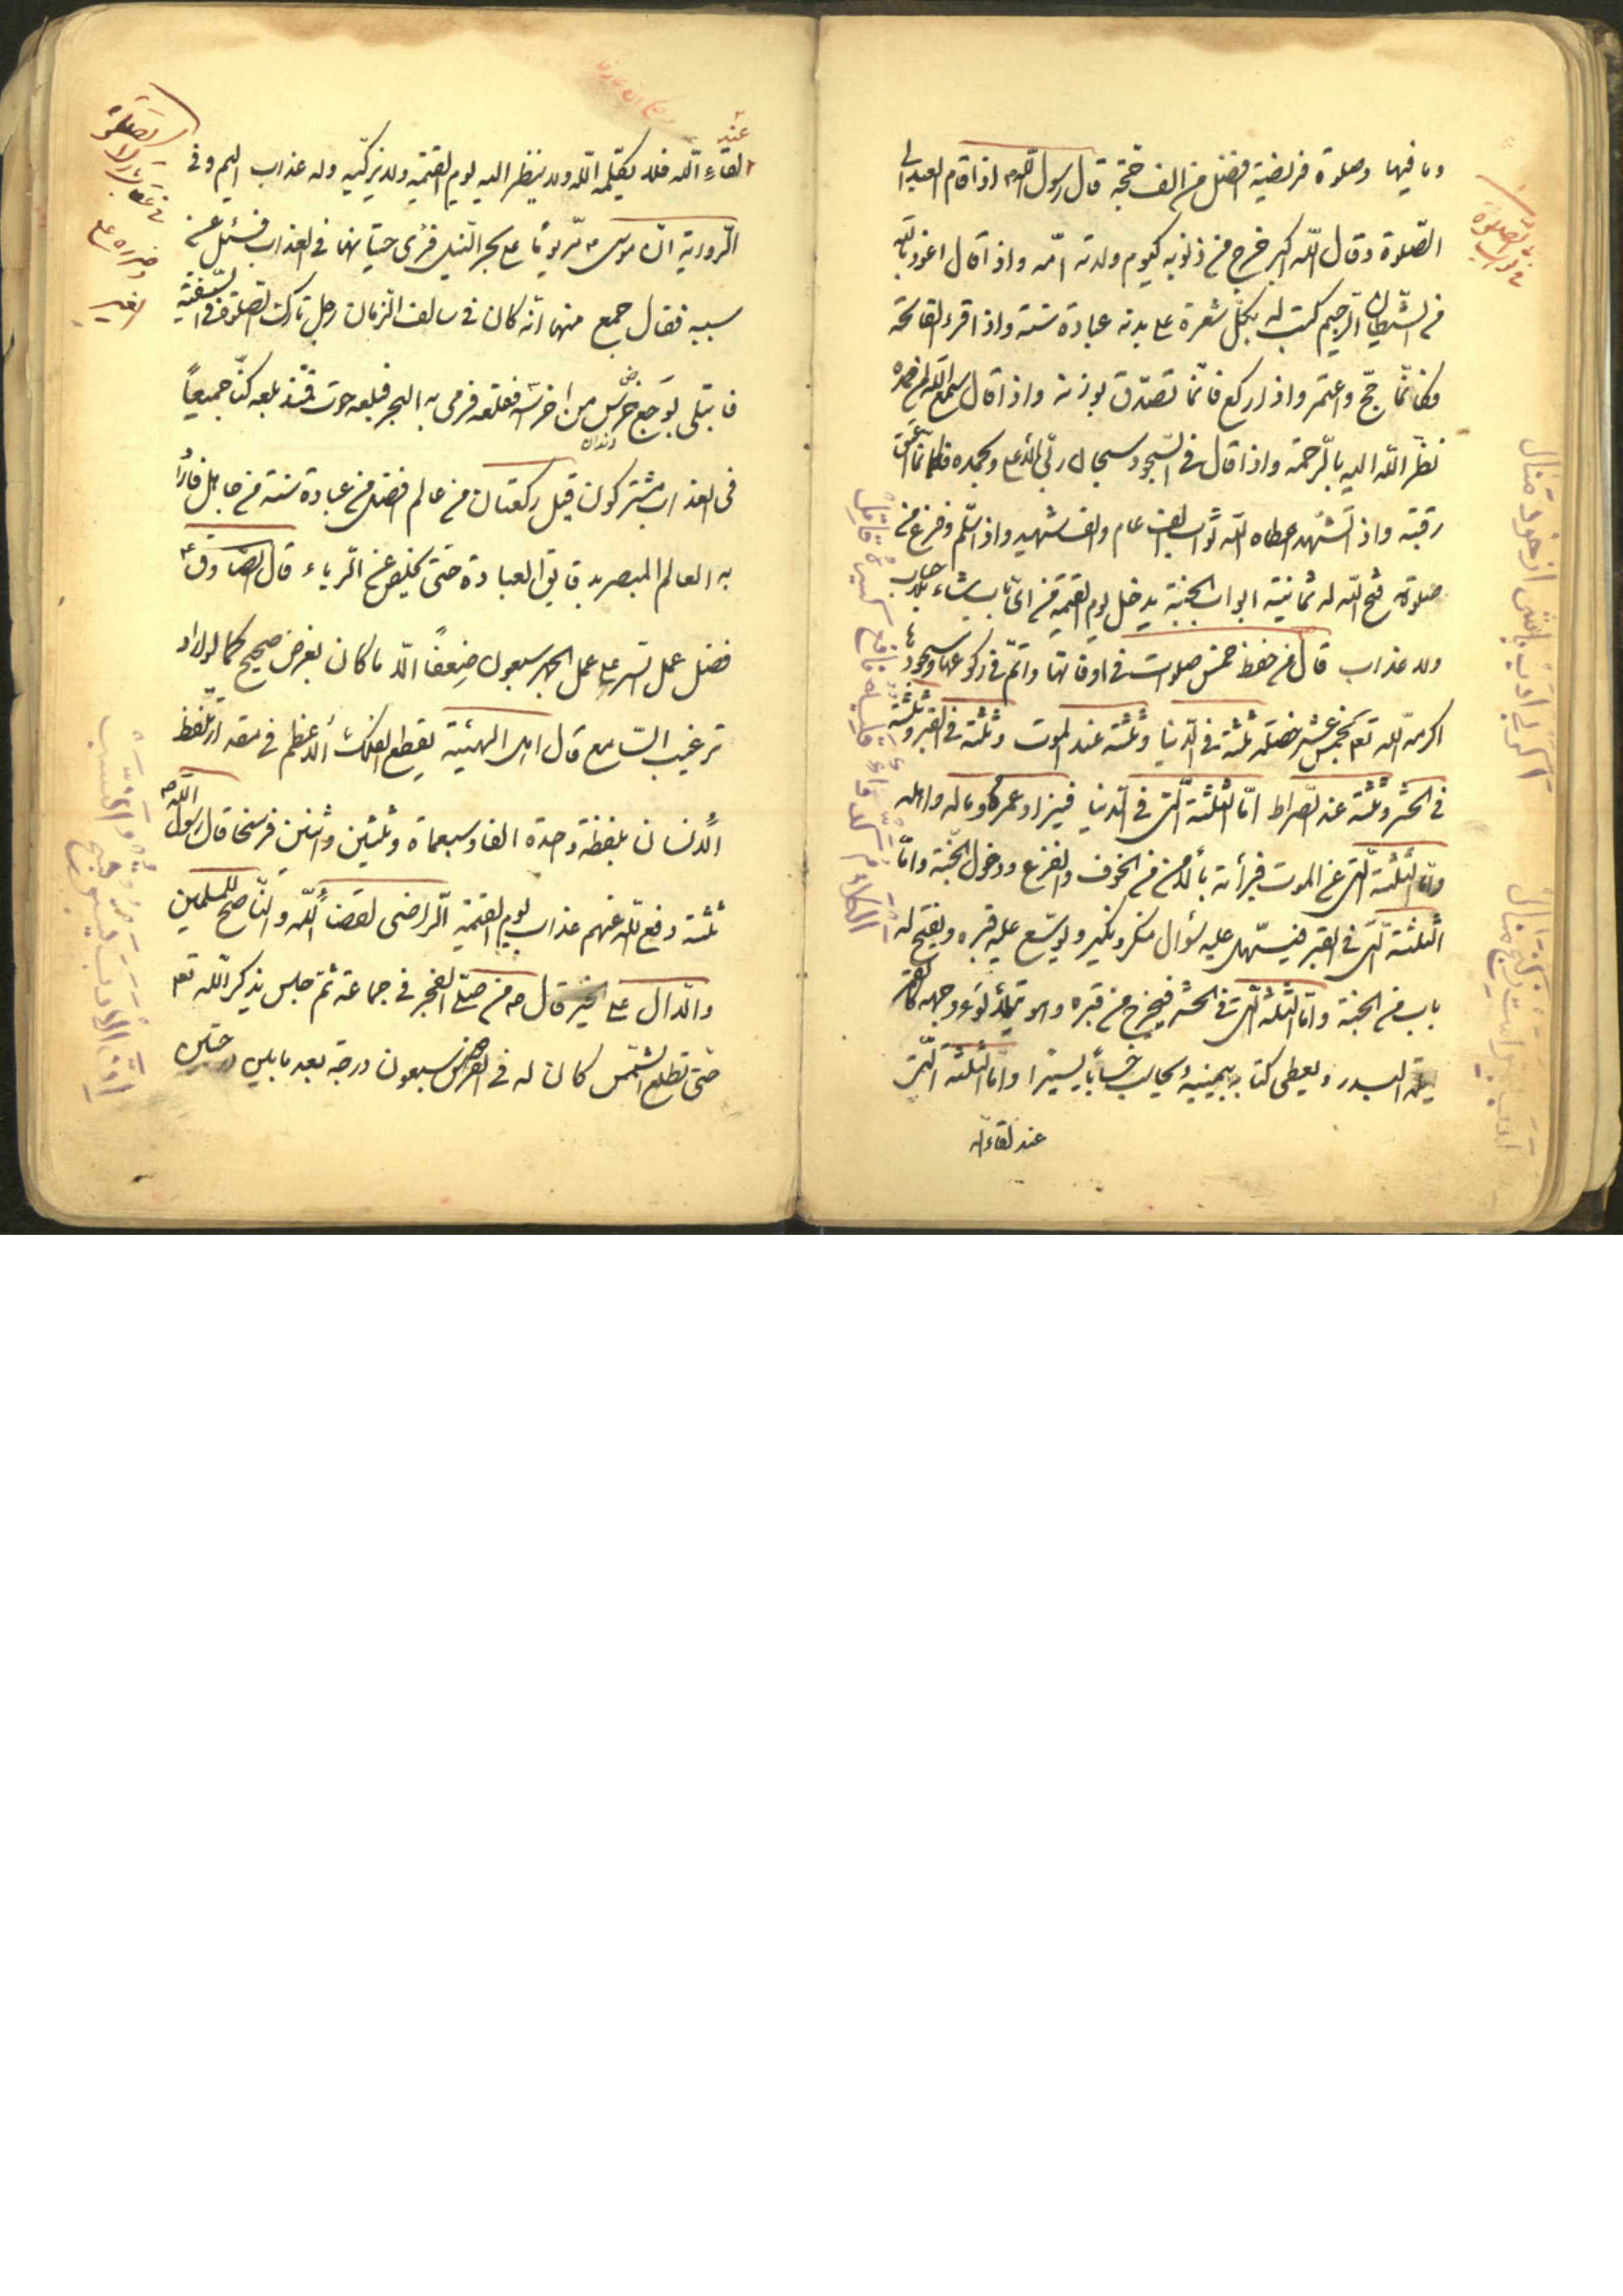 وما فيها وصلوة فريضة افضل من الف حجّة قال رسول اللّه اذا قام العبد الى
الصّلوة وقال اللّه اكبر خرج من ذنوبه كيوم ولدته امّه واذا قال اعوذ باللّه
من الشّيطان الرّجيم كتب له بكلّ شعرة على بدنه عبادة سنة واذا قرء الفاتحة
فكانّما حجّ واعتمر واذا ركع فكانّما تصدّق بوزنه واذا قال سمع اللّه لمن حمده
نظر اللّه اليه بالرّحمة واذا قال فى السّجود سبحان ربّى الاعلى وبحمده فكانّما اعتق
رقبة واذا تشهّد اعطاه اللّه ثواب الف عام والف شهيد واذا سلّم وفرغ من
صلوته فتح اللّه له ثمانية ابواب الجنّة يدخل يوم القيمة من اىّ باب يشاء بلا حساب
ولا عذاب قال من حفظ خمس صلوات فى اوقاتها واتمّ فى ركوعها وسجودها
اكرمه اللّه تعم بخمس عشر خصلة ثلثة فى الدّنيا وثلثة عند الموت وثلثة فى القبر وثلثة
فى الحشر وثلثة عند الصّراط امّا الثلثة الّتى فى الدّنيا فيزاد عمره وماله واهله
وامّا الثلثة الّتى عند الموت فبرأته بالامن من الخوف والفزع ودخول الجنّة وامّا
الثلثة الّتى فى القبر فيسهّل عليه سؤال منكر ونكير ويوسّع عليه قبره ويفتح له
باب من الجنّة وامّا الثلثة الّتى فى الحشر فيخرج من قبره وهو يتلألؤ وجهه كالقمر
ليلة البدر ويعطى كتابه بيمينه ويحاسب حساباً يسيرًا وامّا الثلثة الّتى
عند لقاء اللّه
فى ثواب الصّلوة
اكبر ادب باش از خود منال
عند
لقاء اللّه فلا يكلّمه اللّه ولا ينظر اليه يوم القيمة ولا يزكّيه وله عذاب اليم وفى
الرّواية انّ موسى مرّ يومًا على بحر النّيل فرأى حيتانها فى العذاب فسئل عن
سببه فقال جمع منها انّه كان فى سالف الزّمان رجل تارك الصّلوة فى السّفينة
فابتلى بوجع ضرس من اضراسه فقلعه فرمى به البحر فبلعه حوت فمنذ بلعه كنّا جميعاً
دندان
فى العذاب مشتركون قيل ركعتان من عالم افضل من عبادة سنة من جاهل فارًّا
به العالم المبصر بدقايق العبادة حتى يخلص عن الرياء قال الصّادق
فضل عمل السّر على عمل الجهر سبعون ضعفًا الّا ما كان بغرض صحيح كما لو اراد
ترغيب السّامع قال اهل الهيئة يقطع الفلك الاعظم فى مقدار تلفّظ
الانسان بلفظة واحدة الفا وسبعماة وثلثين واثنين فرسخا قال رسول اللّه
ثلثة دفع اللّه عنهم عذاب يوم القيمة الرّاضى لقضاء اللّه والنّاصح للمسلمين
والدّال على الخير قال من صلّى الفجر فى جماعة ثم جلس يذكر اللّه تعم
حتّى تطلع الشّمس كان له فى الفردوس سبعون درجة بعد ما بين درجتين